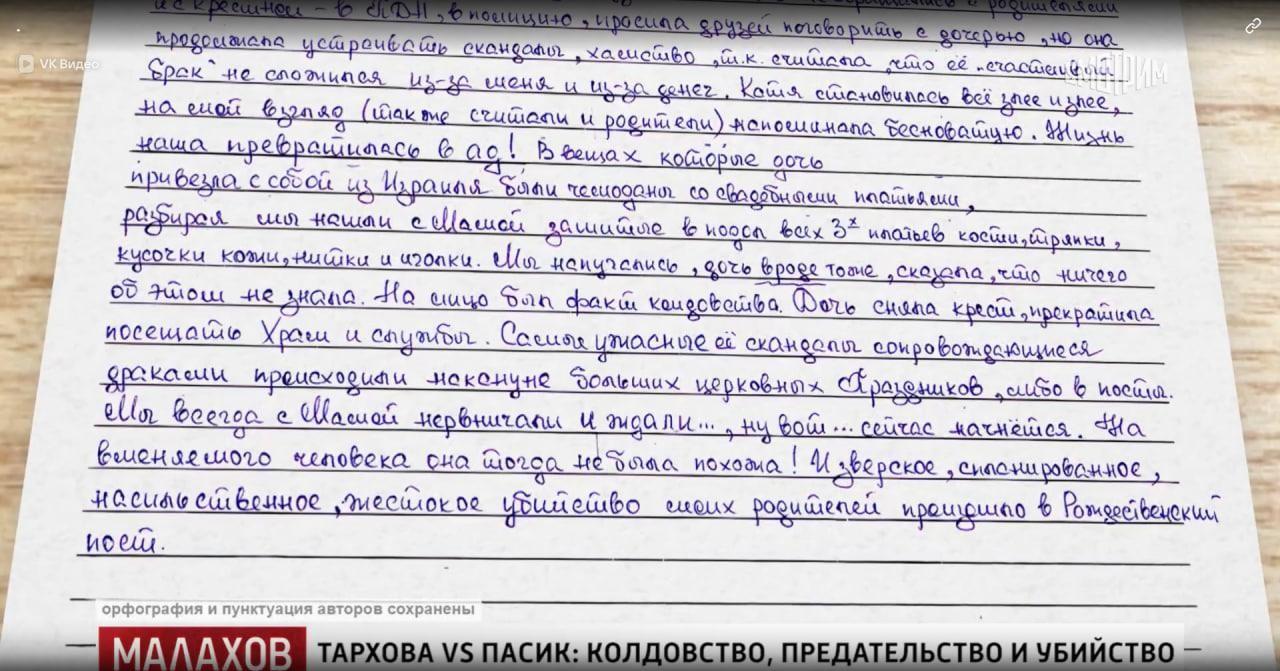 и с крестной - в ПДН, в полицию, просила друзей поговорить с дочерью, но она
VK Видео
продолжала устраивать скандалы, хамство, т.к. считала, что её "счастливый
СМОТРИМ
брак" не сложился из-за меня и из-за денег. Катя становилась всё злее и злее,
на мой взгляд (также считали и родители) напоминала бесноватую. Жизнь
наша превратилась в ад! В вещах которые дочь
привезла с собой из Израиля были чемоданы со свадебными платьями,
разбирая мы нашли с Мамой зашитые в подол всех 3х платьев кости, тряпки,
кусочки кожи, нитки и иголки. Мы напугались, дочь вроде тоже, сказала, что ничего
об этом не знала. На лицо был факт колдовства. Дочь сняла крест, прекратила
посещать Храм и службы. Самые ужасные её скандалы сопровождающиеся
драками происходили накануне больших церковных Праздников, либо в посты.
Мы всегда с Мамой нервничали и ждали..., ну вот... сейчас начнётся. На
вменяемого человека она тогда не была похожа! Изверское, спланированное,
насильственное, жестокое убийство моих родителей произошло в Рождественский
пост.
орфография и пунктуация авторов сохранены
МАЛАХОВ
ТАРХОВА VS ПАСИК: КОЛДОВСТВО, ПРЕДАТЕЛЬСТВО И УБИЙСТВО